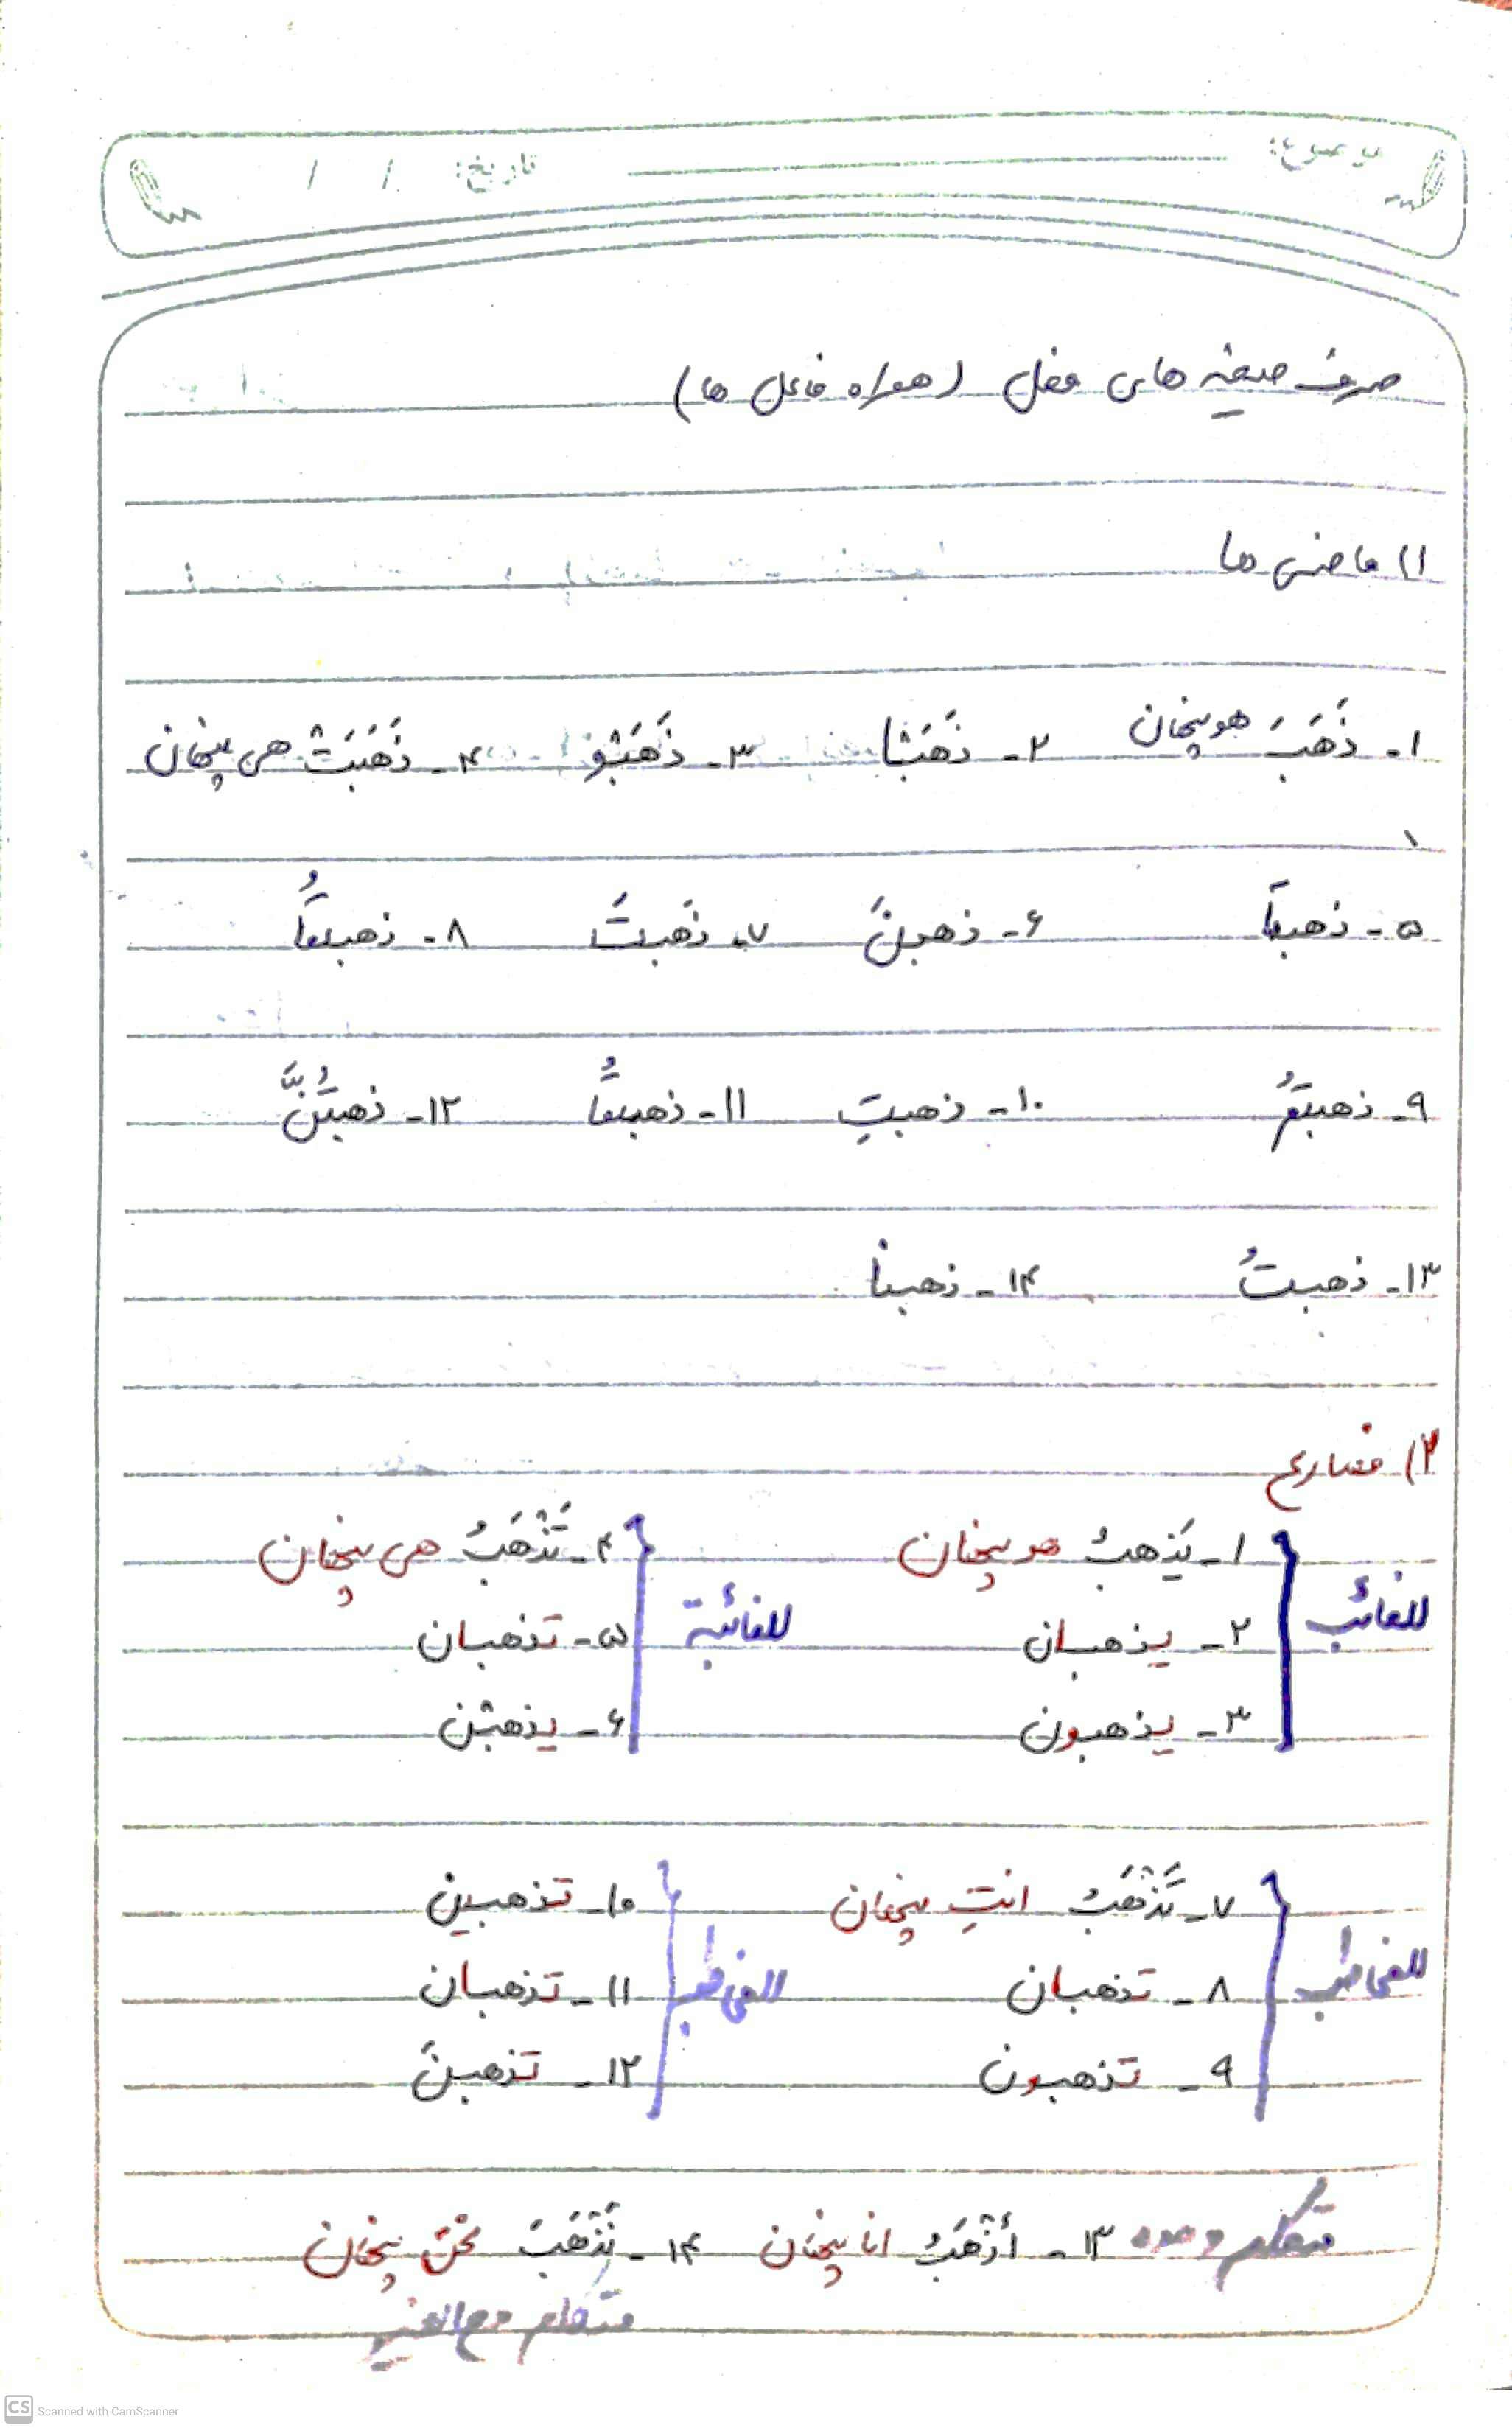 موضوع: تاریخ: / /
صرف صیغه های فعل (همراه فاعل ها)
۱) ماضی ها
۱- ذَهَبَ هو پنهان ۲- ذَهَبَا ۳- ذَهَبُو ۴- ذَهَبَتْ هی پنهان
۵- ذهبتَا ۶- ذهبنَ ۷- ذَهبتَ ۸- ذهبتُمَا
۹- ذهبتمُ ۱۰- ذهبتِ ۱۱- ذهبتُمَا ۱۲- ذهبتُنَّ
۱۳- ذهبتُ ۱۴- ذهبنا
۲) مضارع
للغائب ۱- یَذهبُ هو پنهان
۲- یذهبان
۳- یذهبون
للغائبة ۴- تَذْهَبُ هی پنهان
۵- تذهبان
۶- یذهبْن
للمخاطب ۷- تَذْهَبُ انتِ پنهان
۸- تذهبان
۹- تذهبون
للمخاطبة ۱۰- تذهبین
۱۱- تذهبان
۱۲- تذهبنَ
متکلم وحده ۱۳- أَذْهَبُ انا پنهان ۱۴- نَذْهَبُ نحن پنهان
متکلم مع الغیر
CS Scanned with CamScanner